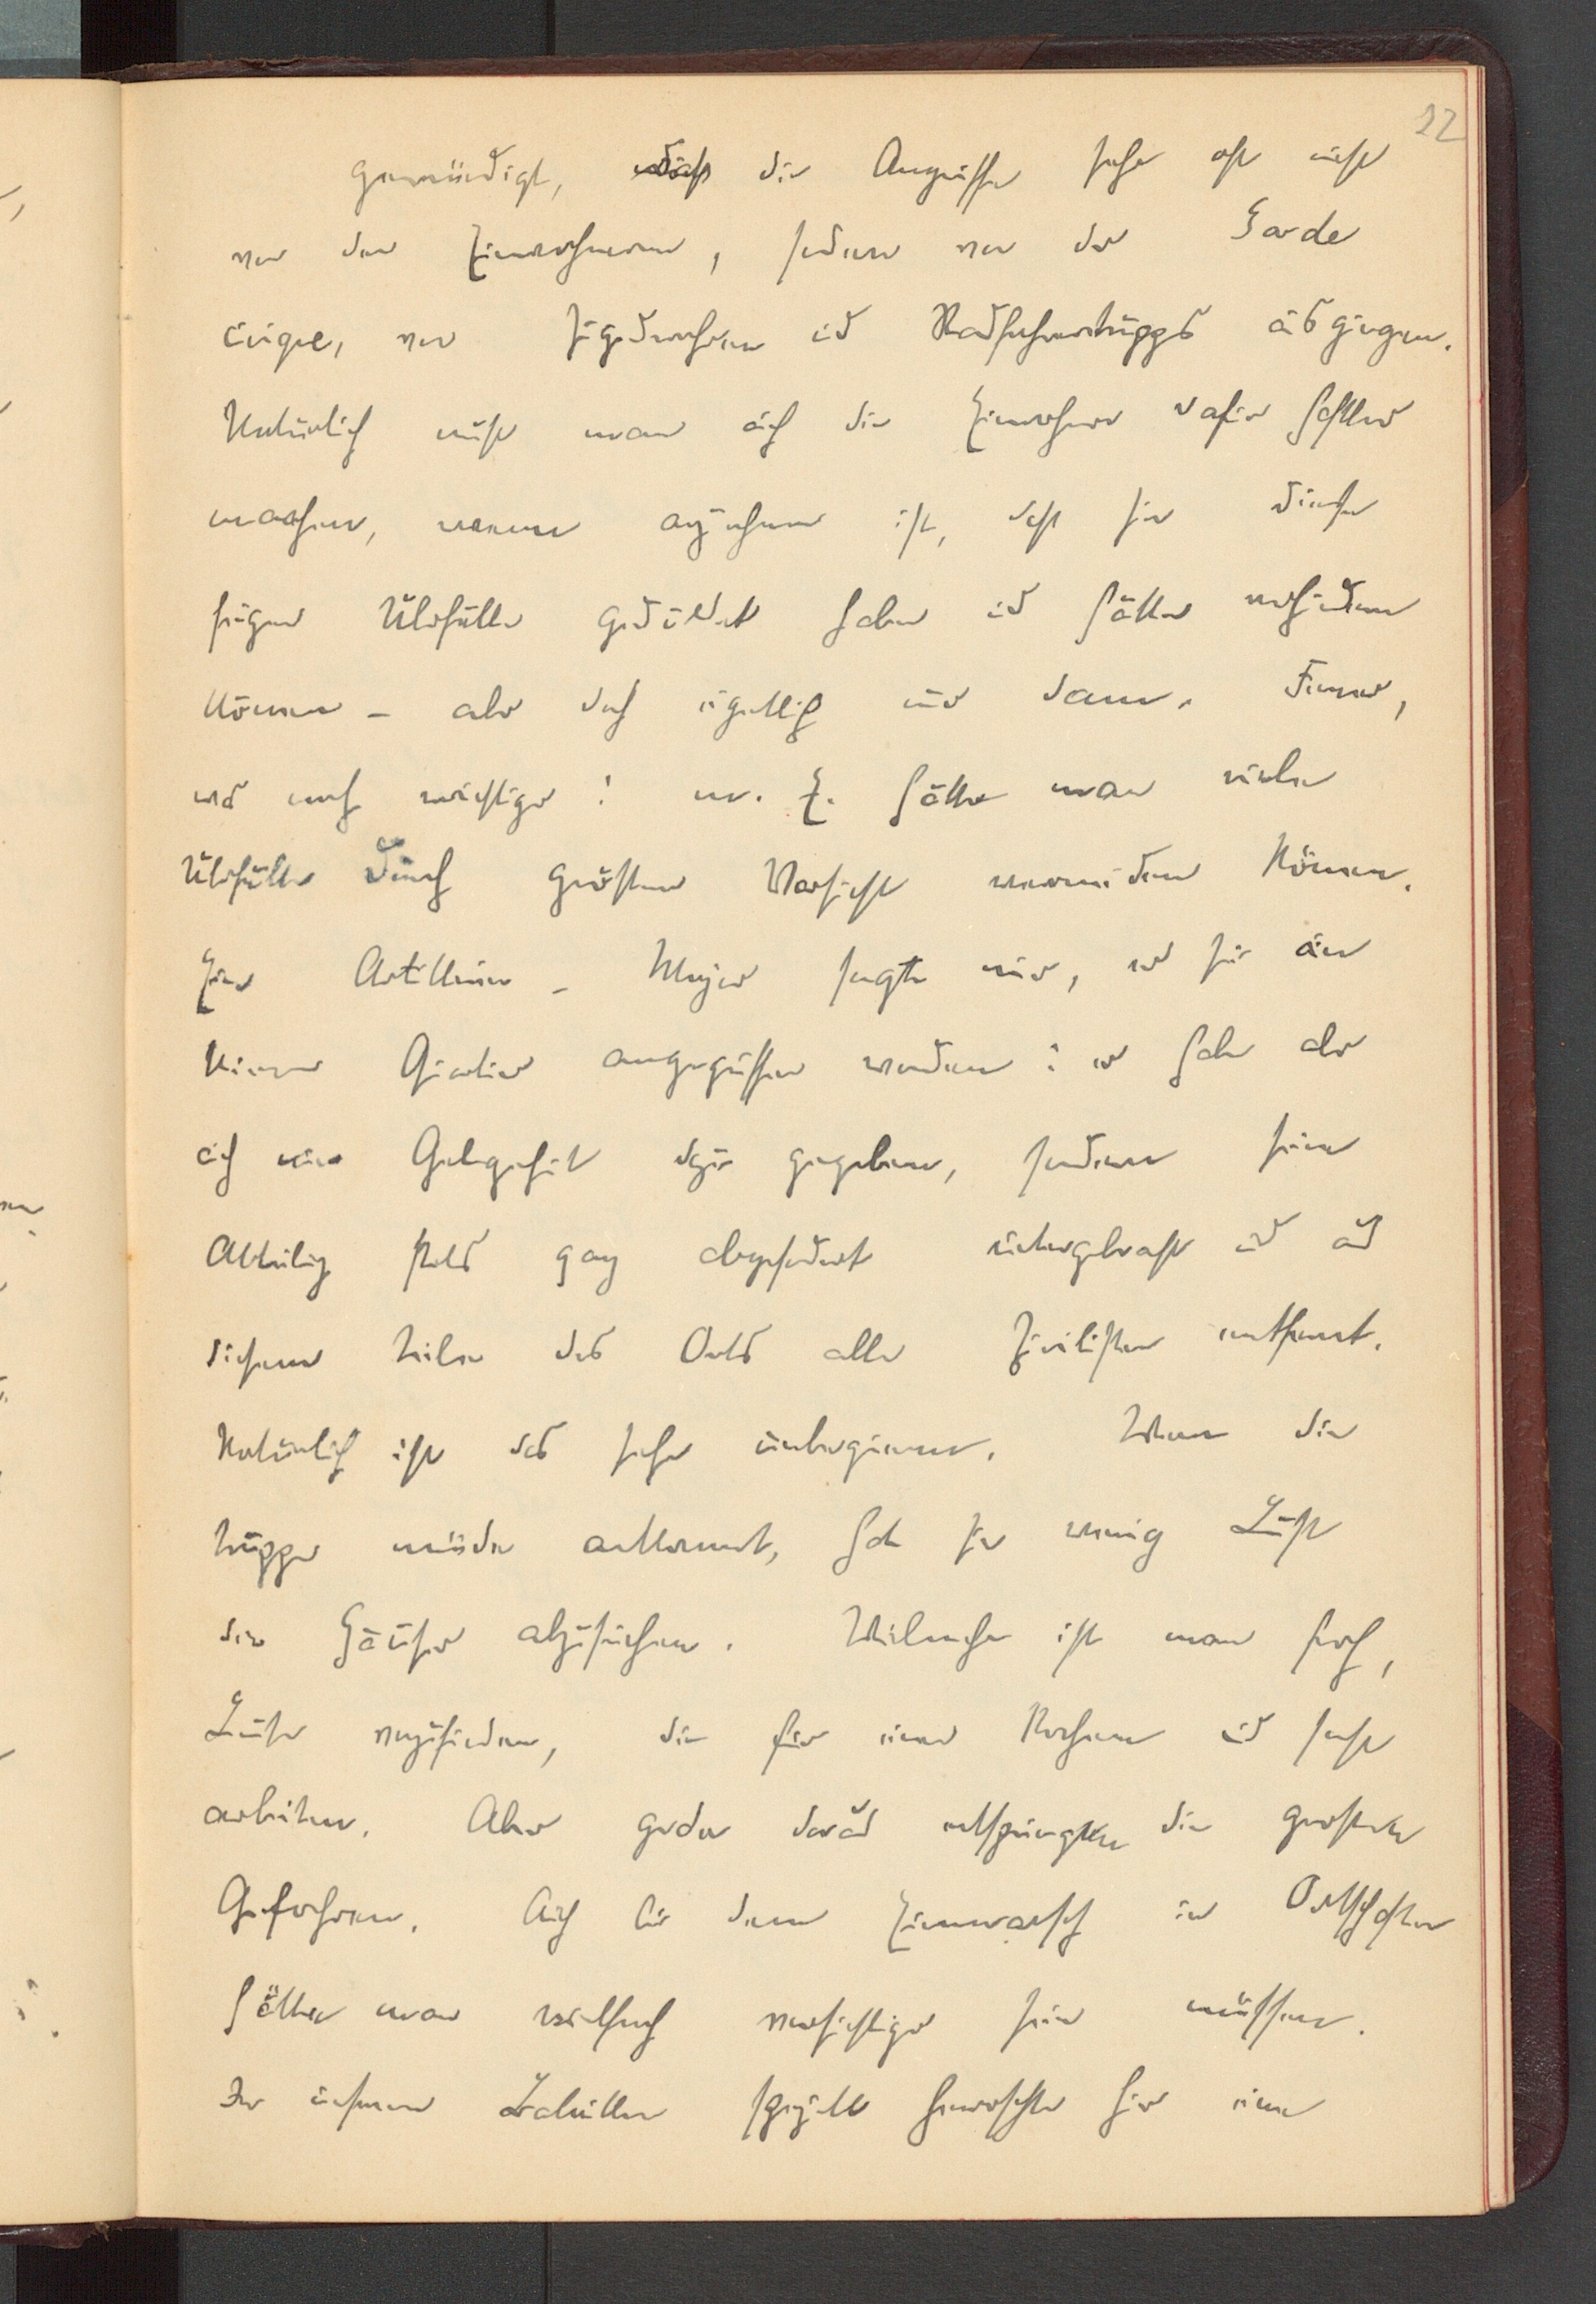 22
gewürdigt, dass die Angriffe sehr oft nicht
von den Einwohnern, sondern von der Garde
civique, von Jägern und Radfahrertrupps ausgingen.
Natürlich muss man auch die Einwohner dafür haftbar
machen, wenn anzunehmen ist, dass sie diese
Überfälle geduldet haben und hätten verhindern
können – aber doch eigentlich nur dann. Ferner,
was noch wichtiger: m. E. hätte man viele
Überfälle durch größere Vorsicht vermeiden können.
Ein Artillerie-Major sagte mir, er sei in
keinem Quartier angegriffen worden: er habe aber
auch nie Gelegenheit dazu gegeben, sondern seine
Abteilung stets ganz abgesondert untergebracht und aus
diesem Teile des Orts alle Zivilisten entfernt.
Natürlich ist das sehr unbequem. Wenn die
Truppe müde ankommt, hat sie wenig Lust
die Häuser abzusuchen. Vielmehr ist man froh,
Leute vorzufinden, die für einen kochen und sonst
arbeiten. Aber gerade daraus entspringen die größten
Gefahren. Auch bei dem Einmarsch in Ortschaften
hätte man vielfach vorsichtiger sein müssen.
In unserem Bataillon herrschte hier eine